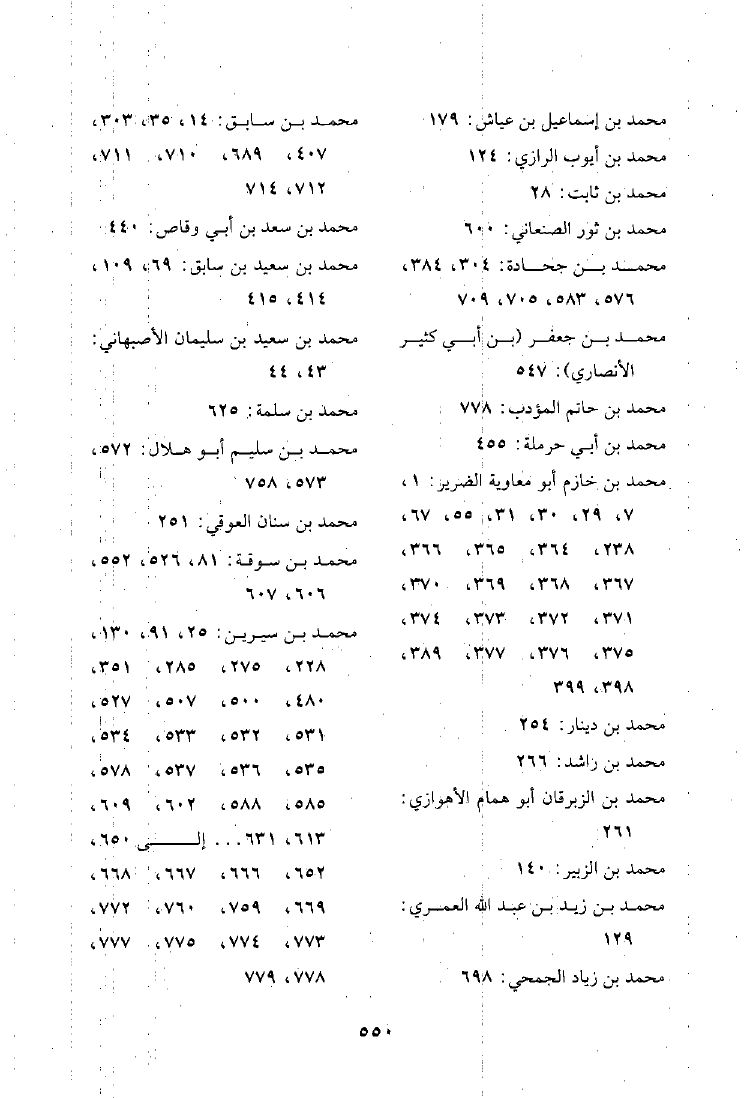 محمد بن إسماعيل بن عياش: ١٧٩
محمد بن أيوب الرازي: ١٢٤
محمد بن ثابت: ٢٨
محمد بن ثور الصنعاني: ٦٠٠
محمد بن جحادة: ٣٠٤، ٣٨٤،
٥٧٦، ٥٨٣، ٧٠٥، ٧٠٩
محمد بن جعفر (بن أبي كثير
الأنصاري): ٥٤٧
محمد بن حاتم المؤدب: ٧٧٨
محمد بن أبي حرملة: ٤٥٥
محمد بن خازم أبو معاوية الضرير: ١،
٧، ٢٩، ٣٠، ٣١، ٥٥، ٦٧،
٢٣٨، ٣٦٤، ٣٦٥، ٣٦٦،
٣٦٧، ٣٦٨، ٣٦٩، ٣٧٠،
٣٧١، ٣٧٢، ٣٧٣، ٣٧٤،
٣٧٥، ٣٧٦، ٣٧٧، ٣٨٩،
٣٩٨، ٣٩٩
محمد بن دينار: ٢٥٤
محمد بن راشد: ٢٦٦
محمد بن الزبرقان أبو همام الأهوازي:
٢٦١
محمد بن الزبير: ١٤٠
محمد بن زيد بن عبد الله العمري:
١٢٩
محمد بن زياد الجمحي: ٦٩٨
محمد بن سابق: ١٤، ٣٥، ٣٠٣،
٤٠٧، ٦٨٩، ٧١٠، ٧١١،
٧١٢، ٧١٤
محمد بن سعد بن أبي وقاص: ٤٤٠
محمد بن سعيد بن سابق: ٦٩، ١٠٩،
٤١٤، ٤١٥
محمد بن سعيد بن سليمان الأصبهاني:
٤٣، ٤٤
محمد بن سلمة: ٦٢٥
محمد بن سليم أبو هلال: ٥٧٢،
٥٧٣، ٧٥٨
محمد بن سنان العوقي: ٢٥١
محمد بن سوقة: ٨١، ٥٢٦، ٥٥٢،
٦٠٦، ٦٠٧
محمد بن سيرين: ٢٥، ٩١، ١٣٠،
٢٢٨، ٢٧٥، ٢٨٥، ٣٥١،
٤٨٠، ٥٠٠، ٥٠٧، ٥٢٧،
٥٣١، ٥٣٢، ٥٣٣، ٥٣٤،
٥٣٥، ٥٣٦، ٥٣٧، ٥٧٨،
٥٨٥، ٥٨٨، ٦٠٢، ٦٠٩،
٦١٣، ٦٣١... إلى ٦٥٠،
٦٥٢، ٦٦٦، ٦٦٧، ٦٦٨،
٦٦٩، ٧٥٩، ٧٦٠، ٧٧٢،
٧٧٣، ٧٧٤، ٧٧٥، ٧٧٧،
٧٧٨، ٧٧٩
٥٥٠